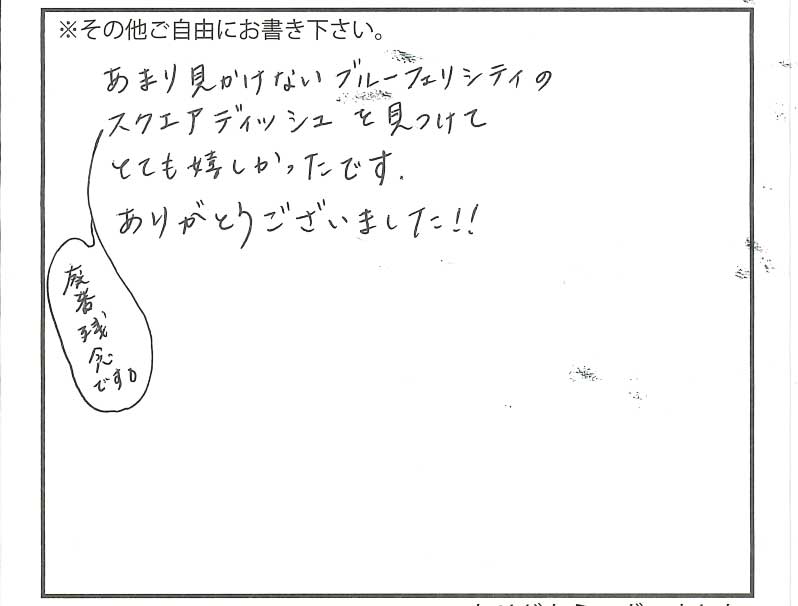 ※その他ご自由にお書き下さい。
あまり見かけないブルーフェリシティの
スクエアディッシュを見つけて
とても嬉しかったです.
ありがとうございました!!
廃番残念です。